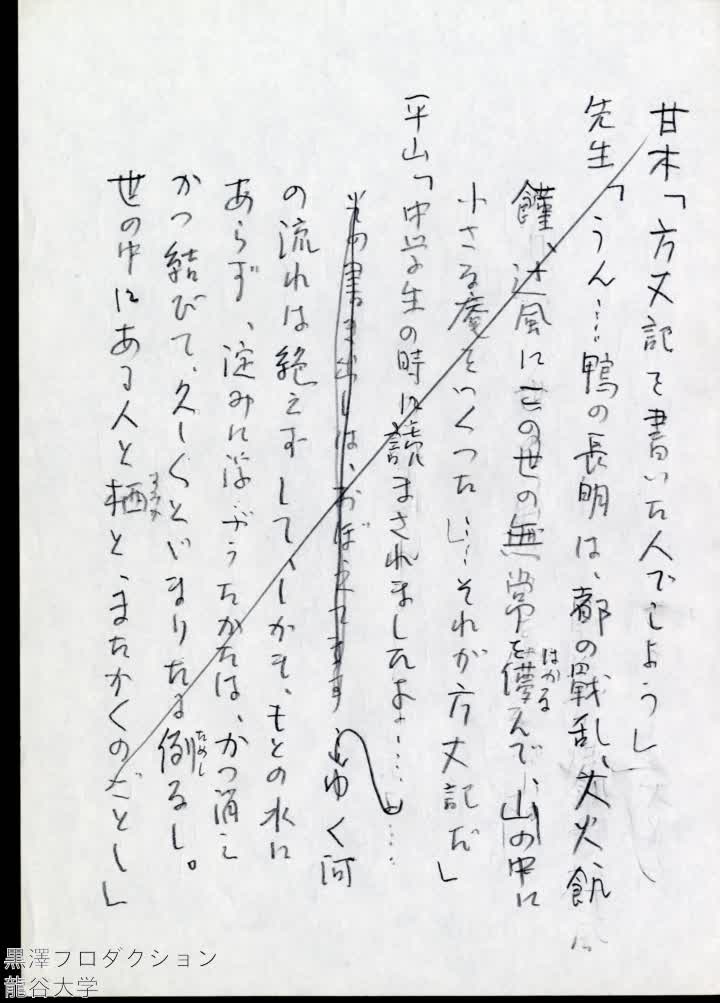 甘木「方丈記を書いた人でしよう」
先生「うん…鴨の長明は、都の戰乱、大火飢
饉、辻風にこの世の無常を儚んで、山の中に
はかな
小さな庵をつくつた…それが方丈記だ」
平山「中学生の時に読まされましたよ……
その書き出しは、おぼえてます ゆく河
の流れは絶えずして、しかも、もとの水に
あらず、淀みに浮ぶうたかたは、かつ消え
かつ結びて、久しくとゞまりたる例なし。
ためし
世の中にある人と栖と、またかくのごとし」
すみか
黒澤プロダクション
龍谷大学